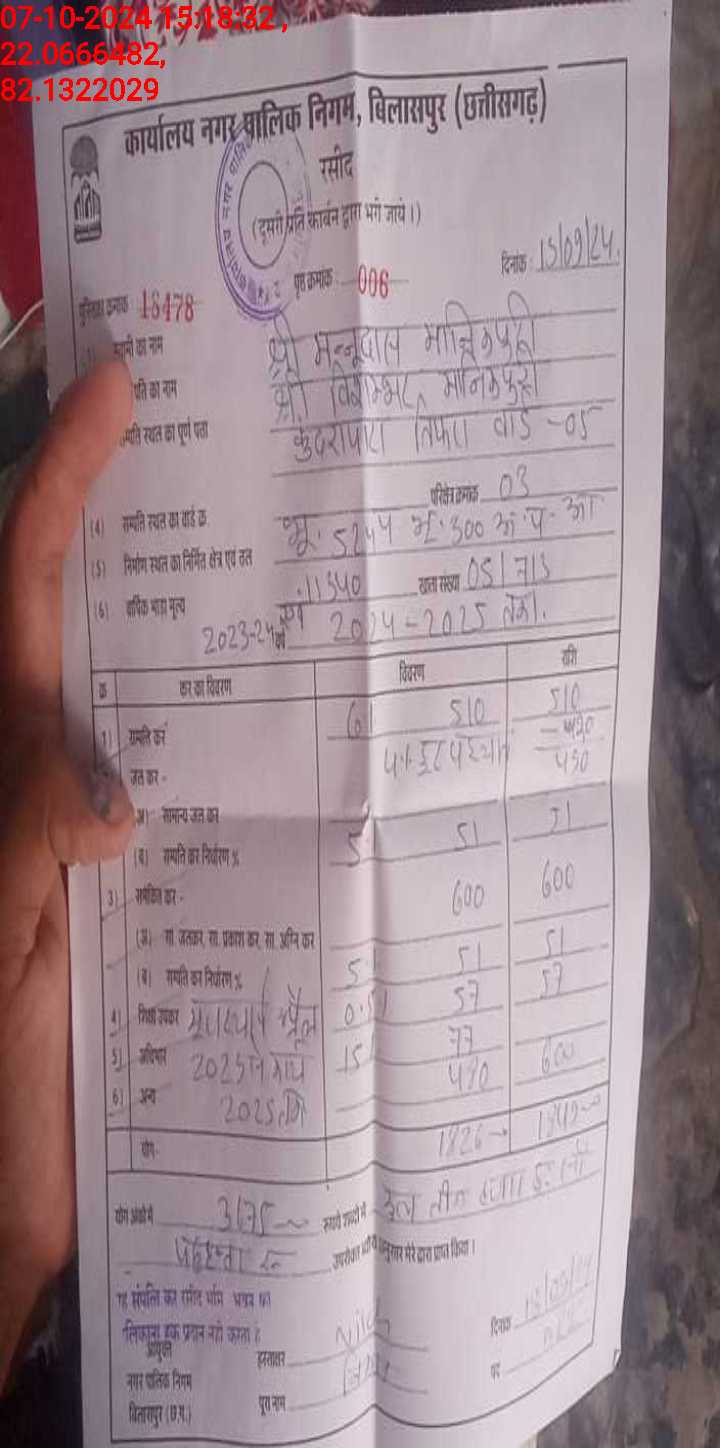 07-10-2024 15:18:32,
22.0666482,
82.1322029
कार्यालय नगर पालिक निगम, बिलासपुर (छत्तीसगढ़)
रसीद
(दूसरी प्रति कार्बन द्वारा भरी जाये।)
दिनांक 15/09/24
पुस्तिका क्रमांक 18478 पृष्ठ क्रमांक 006
स्वामी का नाम श्री मन्नूदास मानिकपुरी
पति का नाम श्री विशम्भर मानिकपुरी
सम्पति स्थल का पूर्ण पता कुंदरापारा तिफरा वार्ड -05
परिक्षेत्र क्रमांक 03
(4) सम्पति स्थल का वार्ड क्र.
(5) निर्माण स्थल का निर्मित क्षेत्र एवं तल भू. 5244 300
(6) वार्षिक भाड़ा मूल्य 11340 खाता संख्या 05/713
2023-24 एवं वर्ष 2024-2025 तक।
क्र कर का विवरण विवरण राशि
1) सम्पति कर 6 510 510
जल कर - 450
अ) सामान्य जल कर
(ब) सम्पति कर निर्धारण % 5 51 51
3) समेकित कर - 600 600
(अ) सा. जलकर, सा. प्रकाश कर, सा. अग्नि कर
(ब) सम्पति कर निर्धारण % 5 51 51
4) शिक्षा उपकर 0.5 57 57
5) अधिभार 15 77
6) अन्य 2025 490 600
योग- 1826
योग अंकों में 3175 रूपये शब्दों में कुल तीन हजार एक सौ
पचहत्तर रु उपरोक्त अनुसार मेरे द्वारा प्राप्त किया।
यह संपत्ति कर रसीद भूमि भवन का
मालिकाना हक प्रदान नही करता है
आयुक्त हस्ताक्षर दिनांक
नगर पालिक निगम पद
बिलासपुर (छ.ग.) पूरा नाम